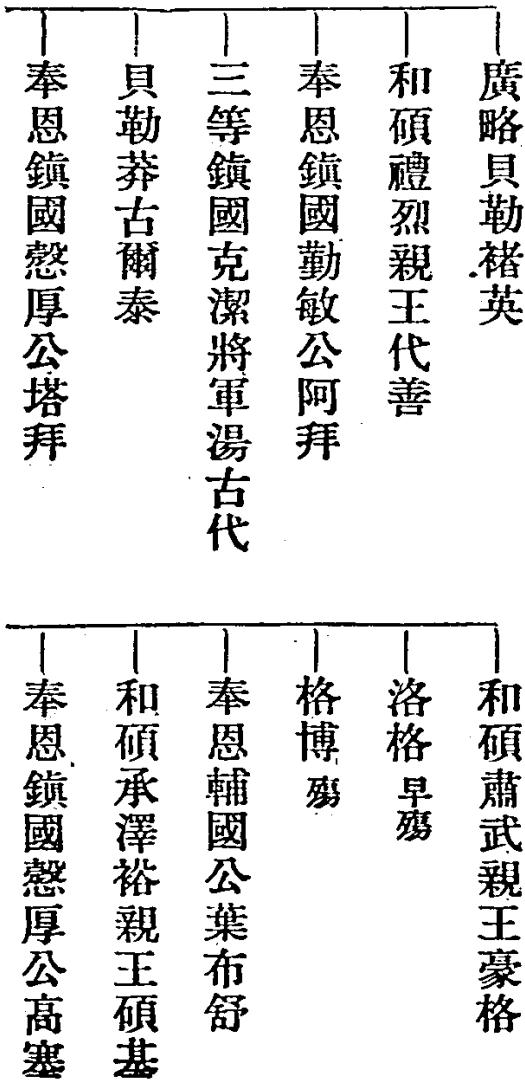 廣略貝勒褚英
和碩禮烈親王代善
奉恩鎭國勤敏公阿拜
三等鎭國克潔將軍湯古代
貝勒莽古爾泰
奉恩鎭國慤厚公塔拜
和碩肅武親王豪格
洛格 早殤
格博 殤
奉恩輔國公葉布舒
和碩承澤裕親王碩基
奉恩鎭國慤厚公高塞